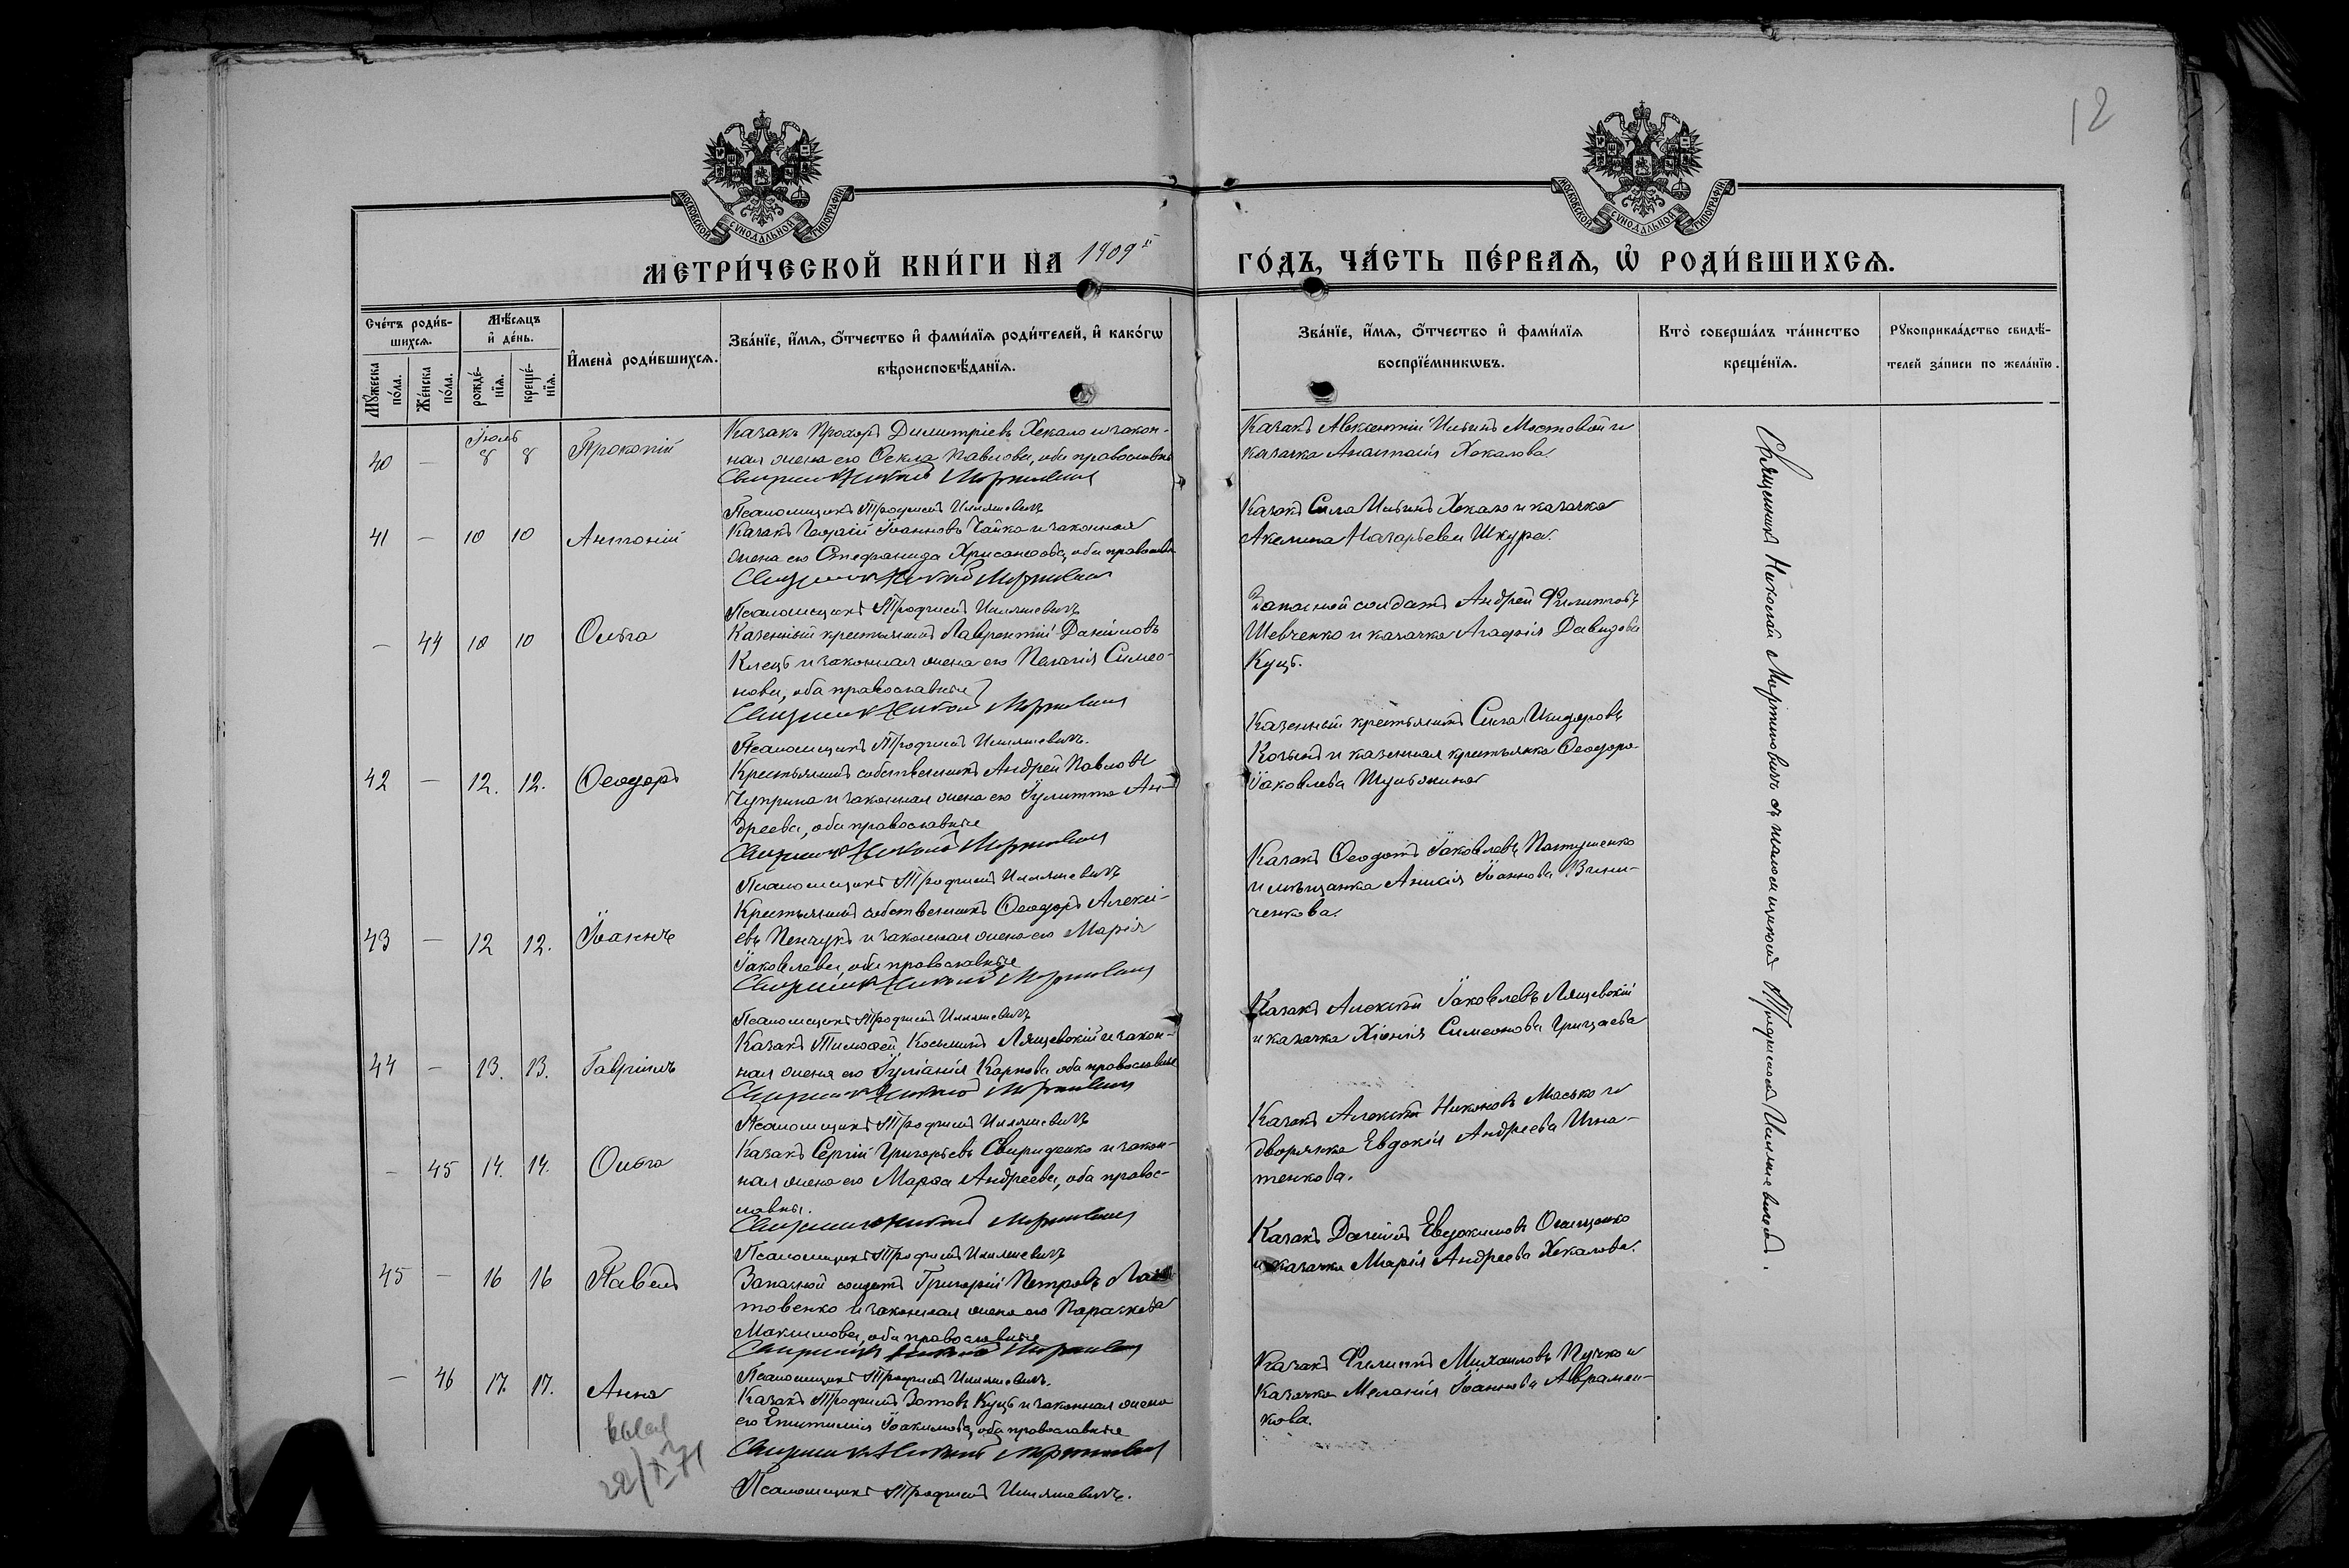 12
МОСКОВСКОЙ СѴНОДАЛЬНОЙ ТИПОГРАФІИ
МОСКОВСКОЙ СѴНОДАЛЬНОЙ ТИПОГРАФІИ
МЕТРИ́ЧЕСКОЙ КНИ́ГИ НА 1909й ГО́ДЪ, ЧА́СТЬ ПЕ́РВАѦ, Ѡ РОДИ́ВШИХСѦ.
Сче́тъ роди́в-
шихсѧ.
Мꙋ́жеска
по́ла.
Же́нска
по́ла.
Мѣ́сѧцъ
и҆ де́нь.
рожде́-
нїѧ.
креще́-
нїѧ.
И҆мена̀ роди́вшихсѧ.
Зва́нїе, и҆́мѧ, ѻ҆́тчество и҆ фами́лїѧ роди́телей, и҆ како́гѡ
вѣроисповѣ́данїѧ.
Зва́нїе, и҆́мѧ, ѻ҆́тчество и҆ фами́лїѧ
воспрїе́мникѡвъ.
Кто̀ соверша́лъ та́инство
креще́нїѧ.
Рꙋкоприкла́дство свидѣ́-
телей за́писи по жела́нїю.
Іюль
40 — 8 8 Прокопій
Казакъ Прохоръ Димитріевъ Хекало и закон-
ная жена его Ѳекла Павлова, оба православные
Священникъ Николай Мартиновичъ
Псаломщикъ Трофимъ Илляшевичъ
Казакъ Авксентій Ильинъ Мостовой и
казачка Анастасія Хекалова.
41 — 10 10 Антоній
Казакъ Георгій Іоанновъ Чайка и законная
жена его Стефанида Хрисанѳова, оба православные
Священникъ Николай Мартиновичъ
Псаломщикъ Трофимъ Илляшевичъ
Казакъ Сила Ильинъ Хекало и казачка
Акилина Назарьева Шкура.
— 44 10 10 Ольга
Казенный крестьянинъ Лаврентій Даніиловъ
Клецъ и законная жена его Пелагія Симео-
нова, оба православные
Священникъ Николай Мартиновичъ
Псаломщикъ Трофимъ Илляшевичъ.
Запасной солдатъ Андрей Филипповъ
Шевченко и казачка Агафія Давидова
Куцъ.
42 — 12. 12. Ѳеодоръ
Крестьянинъ собственникъ Андрей Павловъ
Чуприна и законная жена его Іулитта Ан-
дреева, оба православные
Священникъ Николай Мартиновичъ
Псаломщикъ Трофимъ Илляшевичъ
Казенный крестьянинъ Сила
и казенная крестьянка Ѳеодора
Іаковлева
43 — 12 12. Іоаннъ
Крестьянинъ собственникъ Ѳеодоръ Алексі-
евъ Пенчукъ и законная жена его Марія
Іаковлева, оба православные
Священникъ Николай Мартиновичъ
Псаломщикъ Трофимъ Илляшевичъ
Казакъ Ѳеодотъ Іаковлевъ Пастушенко
и мѣщанка Анисія Іоаннова Вини-
ченкова.
44 — 13. 13. Гавріилъ
Казакъ Тимоѳей Косьминъ Лящевскій и закон-
ная жена его Іуліанія Карпова оба православные
Священникъ Николай Мартиновичъ
Псаломщикъ Трофимъ Илляшевичъ
Казакъ Алексѣй Іаковлевъ Лящевскій
и казачка Хіонія Симеонова Грицаева
— 45 14. 14. Ольга
Казакъ Сергій Григорьевъ Свириденко и закон-
ная жена его Марѳа Андреева, оба правос-
лавны.
Священникъ Николай Мартиновичъ
Псаломщикъ Трофимъ Илляшевичъ
Казакъ Алексѣй Никоновъ Масько и
дворянка Евдокія Андреева Игна-
тенкова.
45 — 16 16 Павелъ
Запасной солдатъ Григорій Петровъ
товенко и законная жена его Параскева
Максимова, оба православные
Священникъ Николай Мартиновичъ
Псаломщикъ Трофимъ Илляшевичъ.
Казакъ Даніилъ Евдокимовъ
и казачка Марія Андреева Хекалова.
— 46 17. 17. Анна
Казакъ Трофимъ Зотовъ Куцъ и законная жена
его Епистимія Іоакимова, оба православные
Священникъ Николай Мартиновичъ
Псаломщикъ Трофимъ Илляшевичъ.
Казакъ Филиппъ Михаиловъ Пучко и
казачка Меланія Іоаннова Авраmен-
кова.
22/X 71
Священникъ Николай Мартиновичъ съ псаломщикомъ Трофимомъ Илляшевичемъ.